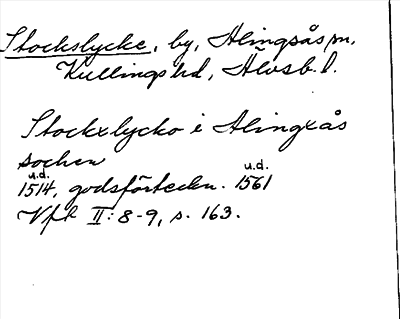 Stockslycke, by, Alingsås sn,
Kullings hd, Älvsb. l.
Stockxlycko i Alingxås
sochen
u.d. u.d.
1514, godsförteckn. 1561
Vft II: 8-9, s. 163.